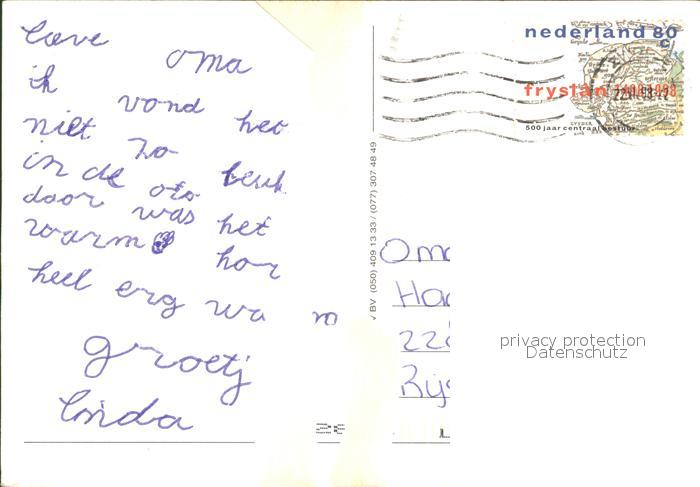 lieve oma
ik vond heo
niet zo leuk
in de oto
daar was het
warm hor
heel erg wa m
groetj
linda
nederland 80
c
fryslân 1498-1998
500 jaar centraal bestuur
V BV (050) 409 13 33 / (077) 307 48 49
Oma
Ha
22
Rijs
privacy protection
Datenschutz